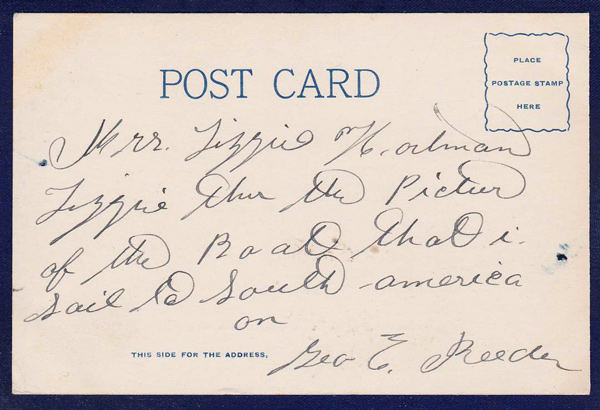 POST CARD
PLACE
POSTAGE STAMP
HERE
Mrs. Lizzie
Lizzie the Pictur
of the Boat that i.
sail to South america
on
THIS SIDE FOR THE ADDRESS.
Geo E. Reeder